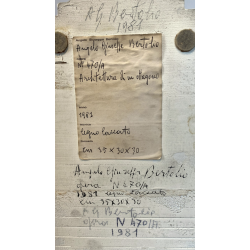 AG Bertolio
1981
Angelo Giuseppe Bertolio
N 470/A
Architettura di un ottagono
1981
legno laccato
cm 35 x 30 x 30
Angelo Giuseppe Bertolio
opera N 470/A
1981 legno laccato
cm 35x30x30
AG Bertolio
opera N 470/A
1981